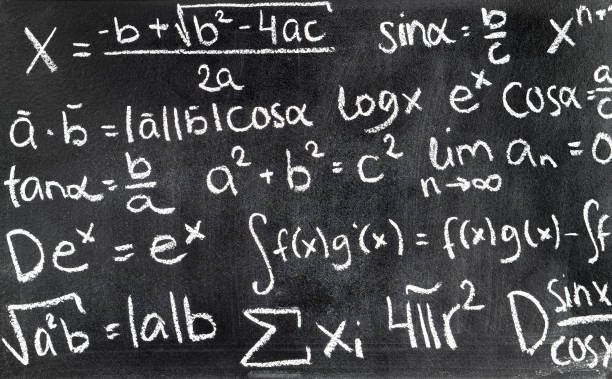 X = -b+√b²-4ac / 2a sinα = b/c xⁿ⁺
ā · b̄ = |ā||b̄|cosα logx eˣ cosα = a/c
tanα = b/a a² + b² = c² lim n→∞ aₙ = 0
Deˣ = eˣ ∫f(x)g'(x) = f(x)g(x)-∫f
√a²b = |a|b ∑xᵢ 4πr² D sinx/cosx